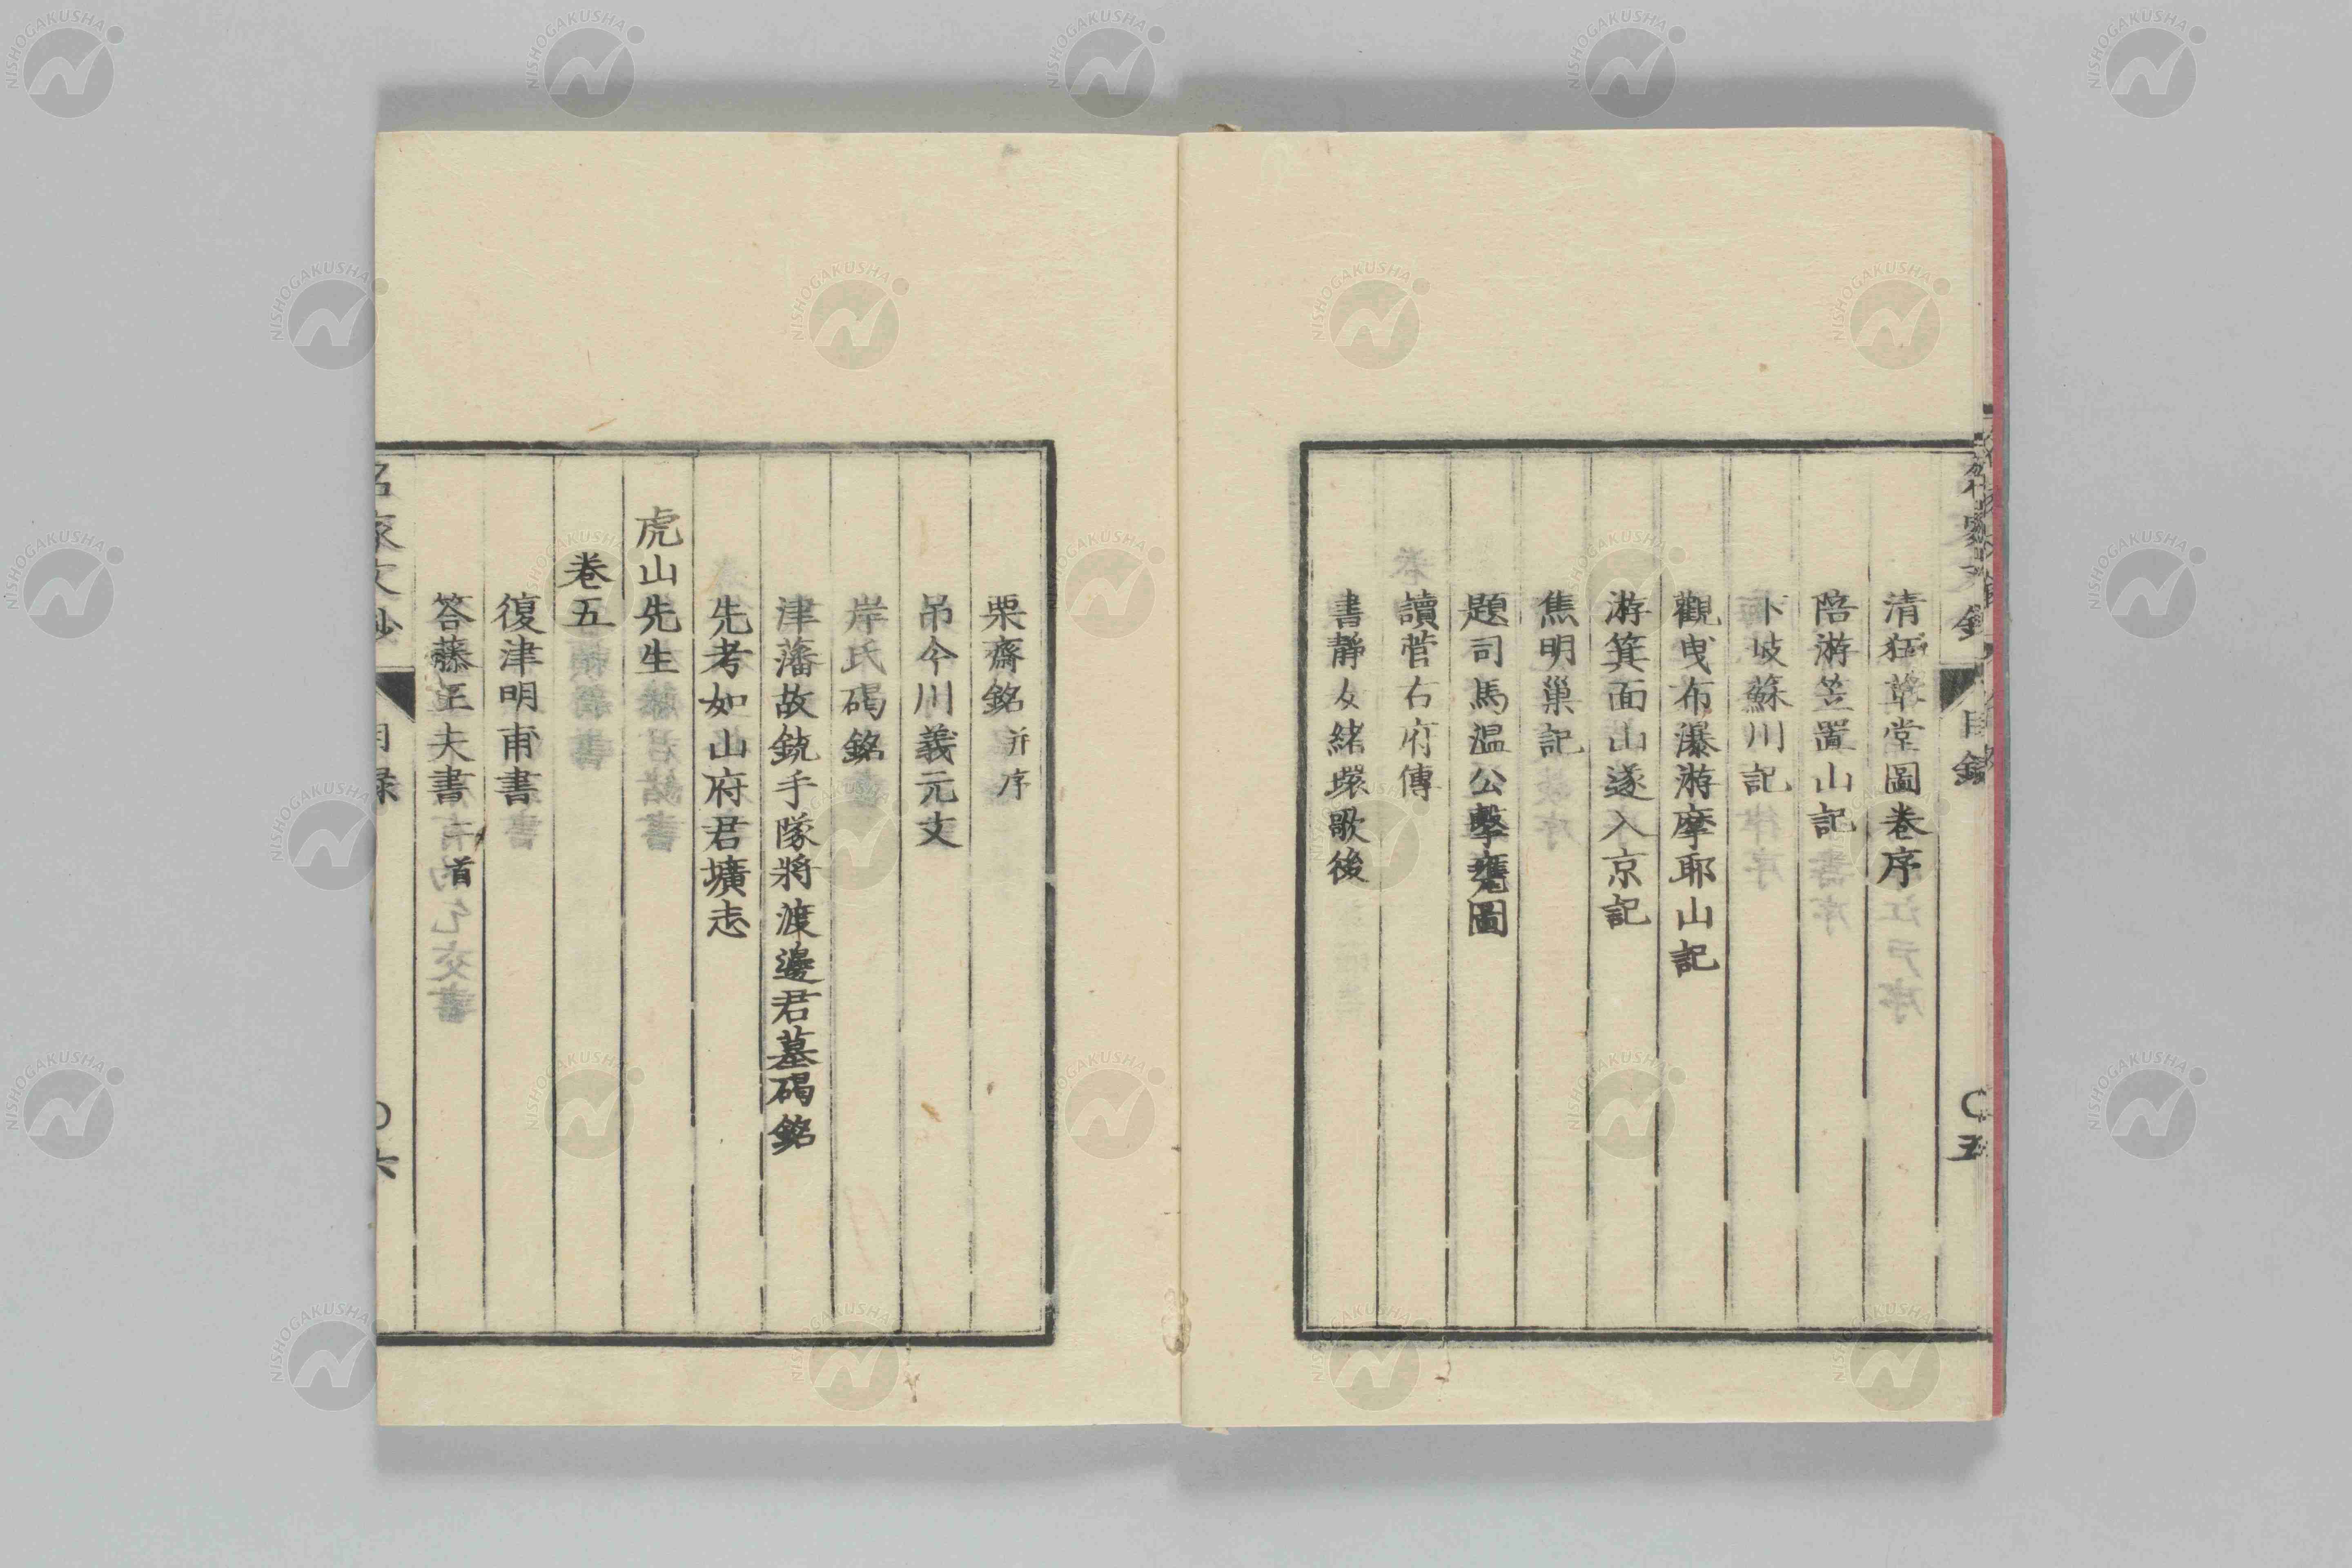 清狂草堂圖卷序
陪游笠置山記
下岐蘇川記
觀曳布瀑游摩耶山記
游箕面山遂入京記
焦明巢記
題司馬溫公擊甕圖
讀菅右府傳
書靜女緒環歌後
目錄
〇五
栗齋銘 并序
弔今川義元文
岸氏碣銘
津藩故銃手隊將渡邊君墓碣銘
先考如山府君壙志
虎山先生
卷五
復津明甫書
答藤正夫書 一首
名家文鈔
目錄
〇六
NISHOGAKUSHA